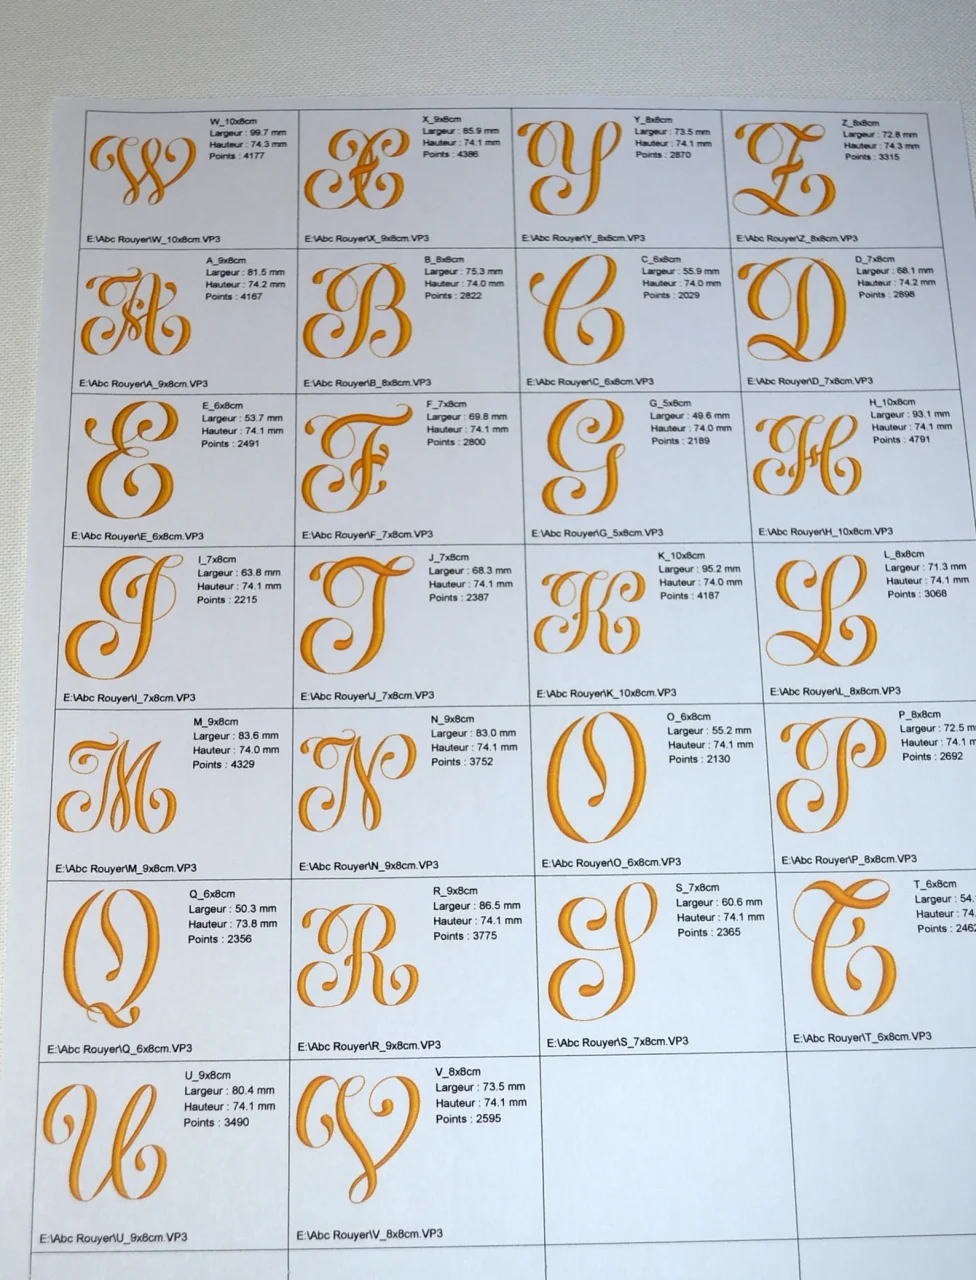 W
W_10x8cm
Largeur : 99.7 mm
Hauteur : 74.3 mm
Points : 4177
E:\Abc Rouyer\W_10x8cm.VP3
X
X_9x8cm
Largeur : 85.9 mm
Hauteur : 74.1 mm
Points : 4386
E:\Abc Rouyer\X_9x8cm.VP3
Y
Y_8x8cm
Largeur : 73.5 mm
Hauteur : 74.1 mm
Points : 2870
E:\Abc Rouyer\Y_8x8cm.VP3
Z
Z_8x8cm
Largeur : 72.8 mm
Hauteur : 74.3 mm
Points : 3315
E:\Abc Rouyer\Z_8x8cm.VP3
A
A_9x8cm
Largeur : 81.5 mm
Hauteur : 74.2 mm
Points : 4167
E:\Abc Rouyer\A_9x8cm.VP3
B
B_8x8cm
Largeur : 75.3 mm
Hauteur : 74.0 mm
Points : 2822
E:\Abc Rouyer\B_8x8cm.VP3
C
C_6x8cm
Largeur : 55.9 mm
Hauteur : 74.0 mm
Points : 2029
E:\Abc Rouyer\C_6x8cm.VP3
D
D_7x8cm
Largeur : 68.1 mm
Hauteur : 74.2 mm
Points : 2898
E:\Abc Rouyer\D_7x8cm.VP3
E
E_6x8cm
Largeur : 53.7 mm
Hauteur : 74.1 mm
Points : 2491
E:\Abc Rouyer\E_6x8cm.VP3
F
F_7x8cm
Largeur : 69.8 mm
Hauteur : 74.1 mm
Points : 2800
E:\Abc Rouyer\F_7x8cm.VP3
G
G_5x8cm
Largeur : 49.6 mm
Hauteur : 74.0 mm
Points : 2189
E:\Abc Rouyer\G_5x8cm.VP3
H
H_10x8cm
Largeur : 93.1 mm
Hauteur : 74.1 mm
Points : 4791
E:\Abc Rouyer\H_10x8cm.VP3
I
I_7x8cm
Largeur : 63.8 mm
Hauteur : 74.1 mm
Points : 2215
E:\Abc Rouyer\I_7x8cm.VP3
J
J_7x8cm
Largeur : 68.3 mm
Hauteur : 74.1 mm
Points : 2387
E:\Abc Rouyer\J_7x8cm.VP3
K
K_10x8cm
Largeur : 95.2 mm
Hauteur : 74.0 mm
Points : 4187
E:\Abc Rouyer\K_10x8cm.VP3
L
L_8x8cm
Largeur : 71.3 mm
Hauteur : 74.1 mm
Points : 3068
E:\Abc Rouyer\L_8x8cm.VP3
M
M_9x8cm
Largeur : 83.6 mm
Hauteur : 74.0 mm
Points : 4329
E:\Abc Rouyer\M_9x8cm.VP3
N
N_9x8cm
Largeur : 83.0 mm
Hauteur : 74.1 mm
Points : 3752
E:\Abc Rouyer\N_9x8cm.VP3
O
O_6x8cm
Largeur : 55.2 mm
Hauteur : 74.1 mm
Points : 2130
E:\Abc Rouyer\O_6x8cm.VP3
P
P_8x8cm
Largeur : 72.5 m
Hauteur : 74.1 m
Points : 2692
E:\Abc Rouyer\P_8x8cm.VP3
Q
Q_6x8cm
Largeur : 50.3 mm
Hauteur : 73.8 mm
Points : 2356
E:\Abc Rouyer\Q_6x8cm.VP3
R
R_9x8cm
Largeur : 86.5 mm
Hauteur : 74.1 mm
Points : 3775
E:\Abc Rouyer\R_9x8cm.VP3
S
S_7x8cm
Largeur : 60.6 mm
Hauteur : 74.1 mm
Points : 2365
E:\Abc Rouyer\S_7x8cm.VP3
T
T_6x8cm
Largeur : 54.
Hauteur : 74.
Points : 2462
E:\Abc Rouyer\T_6x8cm.VP3
U
U_9x8cm
Largeur : 80.4 mm
Hauteur : 74.1 mm
Points : 3490
E:\Abc Rouyer\U_9x8cm.VP3
V
V_8x8cm
Largeur : 73.5 mm
Hauteur : 74.1 mm
Points : 2595
E:\Abc Rouyer\V_8x8cm.VP3